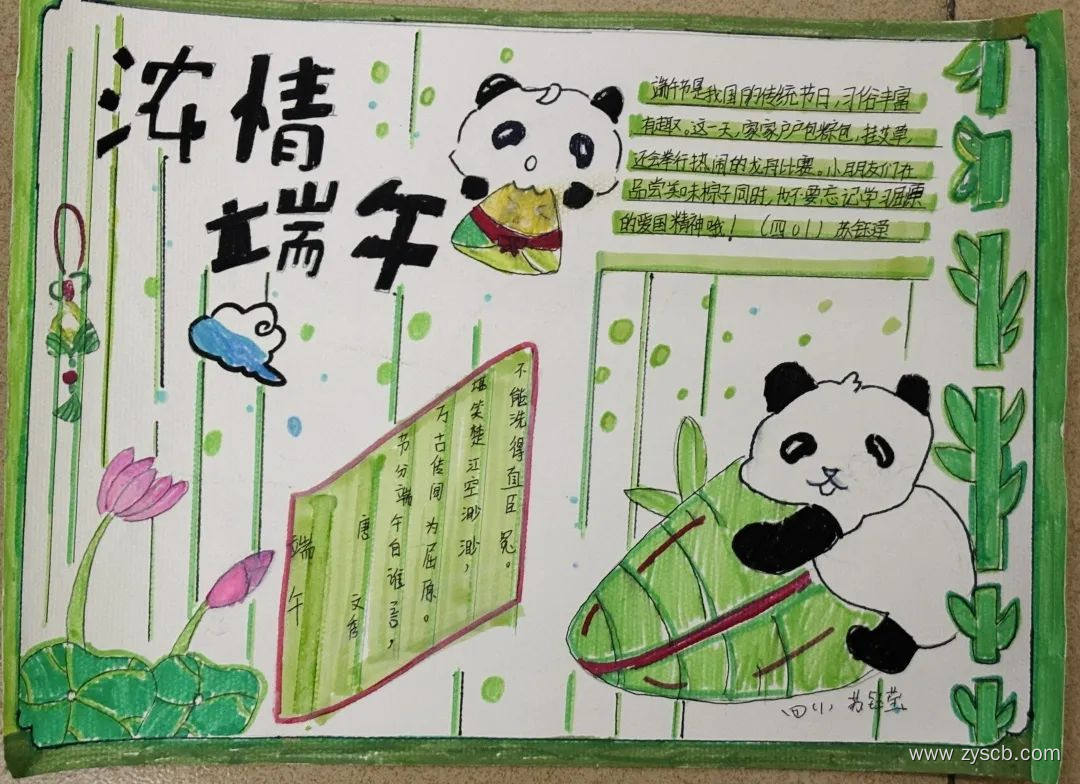 浓情
端午
端午节是我国的传统节日，习俗丰富
有趣。这一天，家家户户包粽包，挂艾草，
还会举行热闹的龙舟比赛。小朋友们在
品尝美味粽子同时，也不要忘记学习屈原
的爱国精神哦！（四01）苏钰莹
端午
唐 文秀
节分端午自谁言，
万古传闻为屈原。
堪笑楚江空渺渺，
不能洗得直臣冤。
四（1）苏钰莹
www.zyscb.com